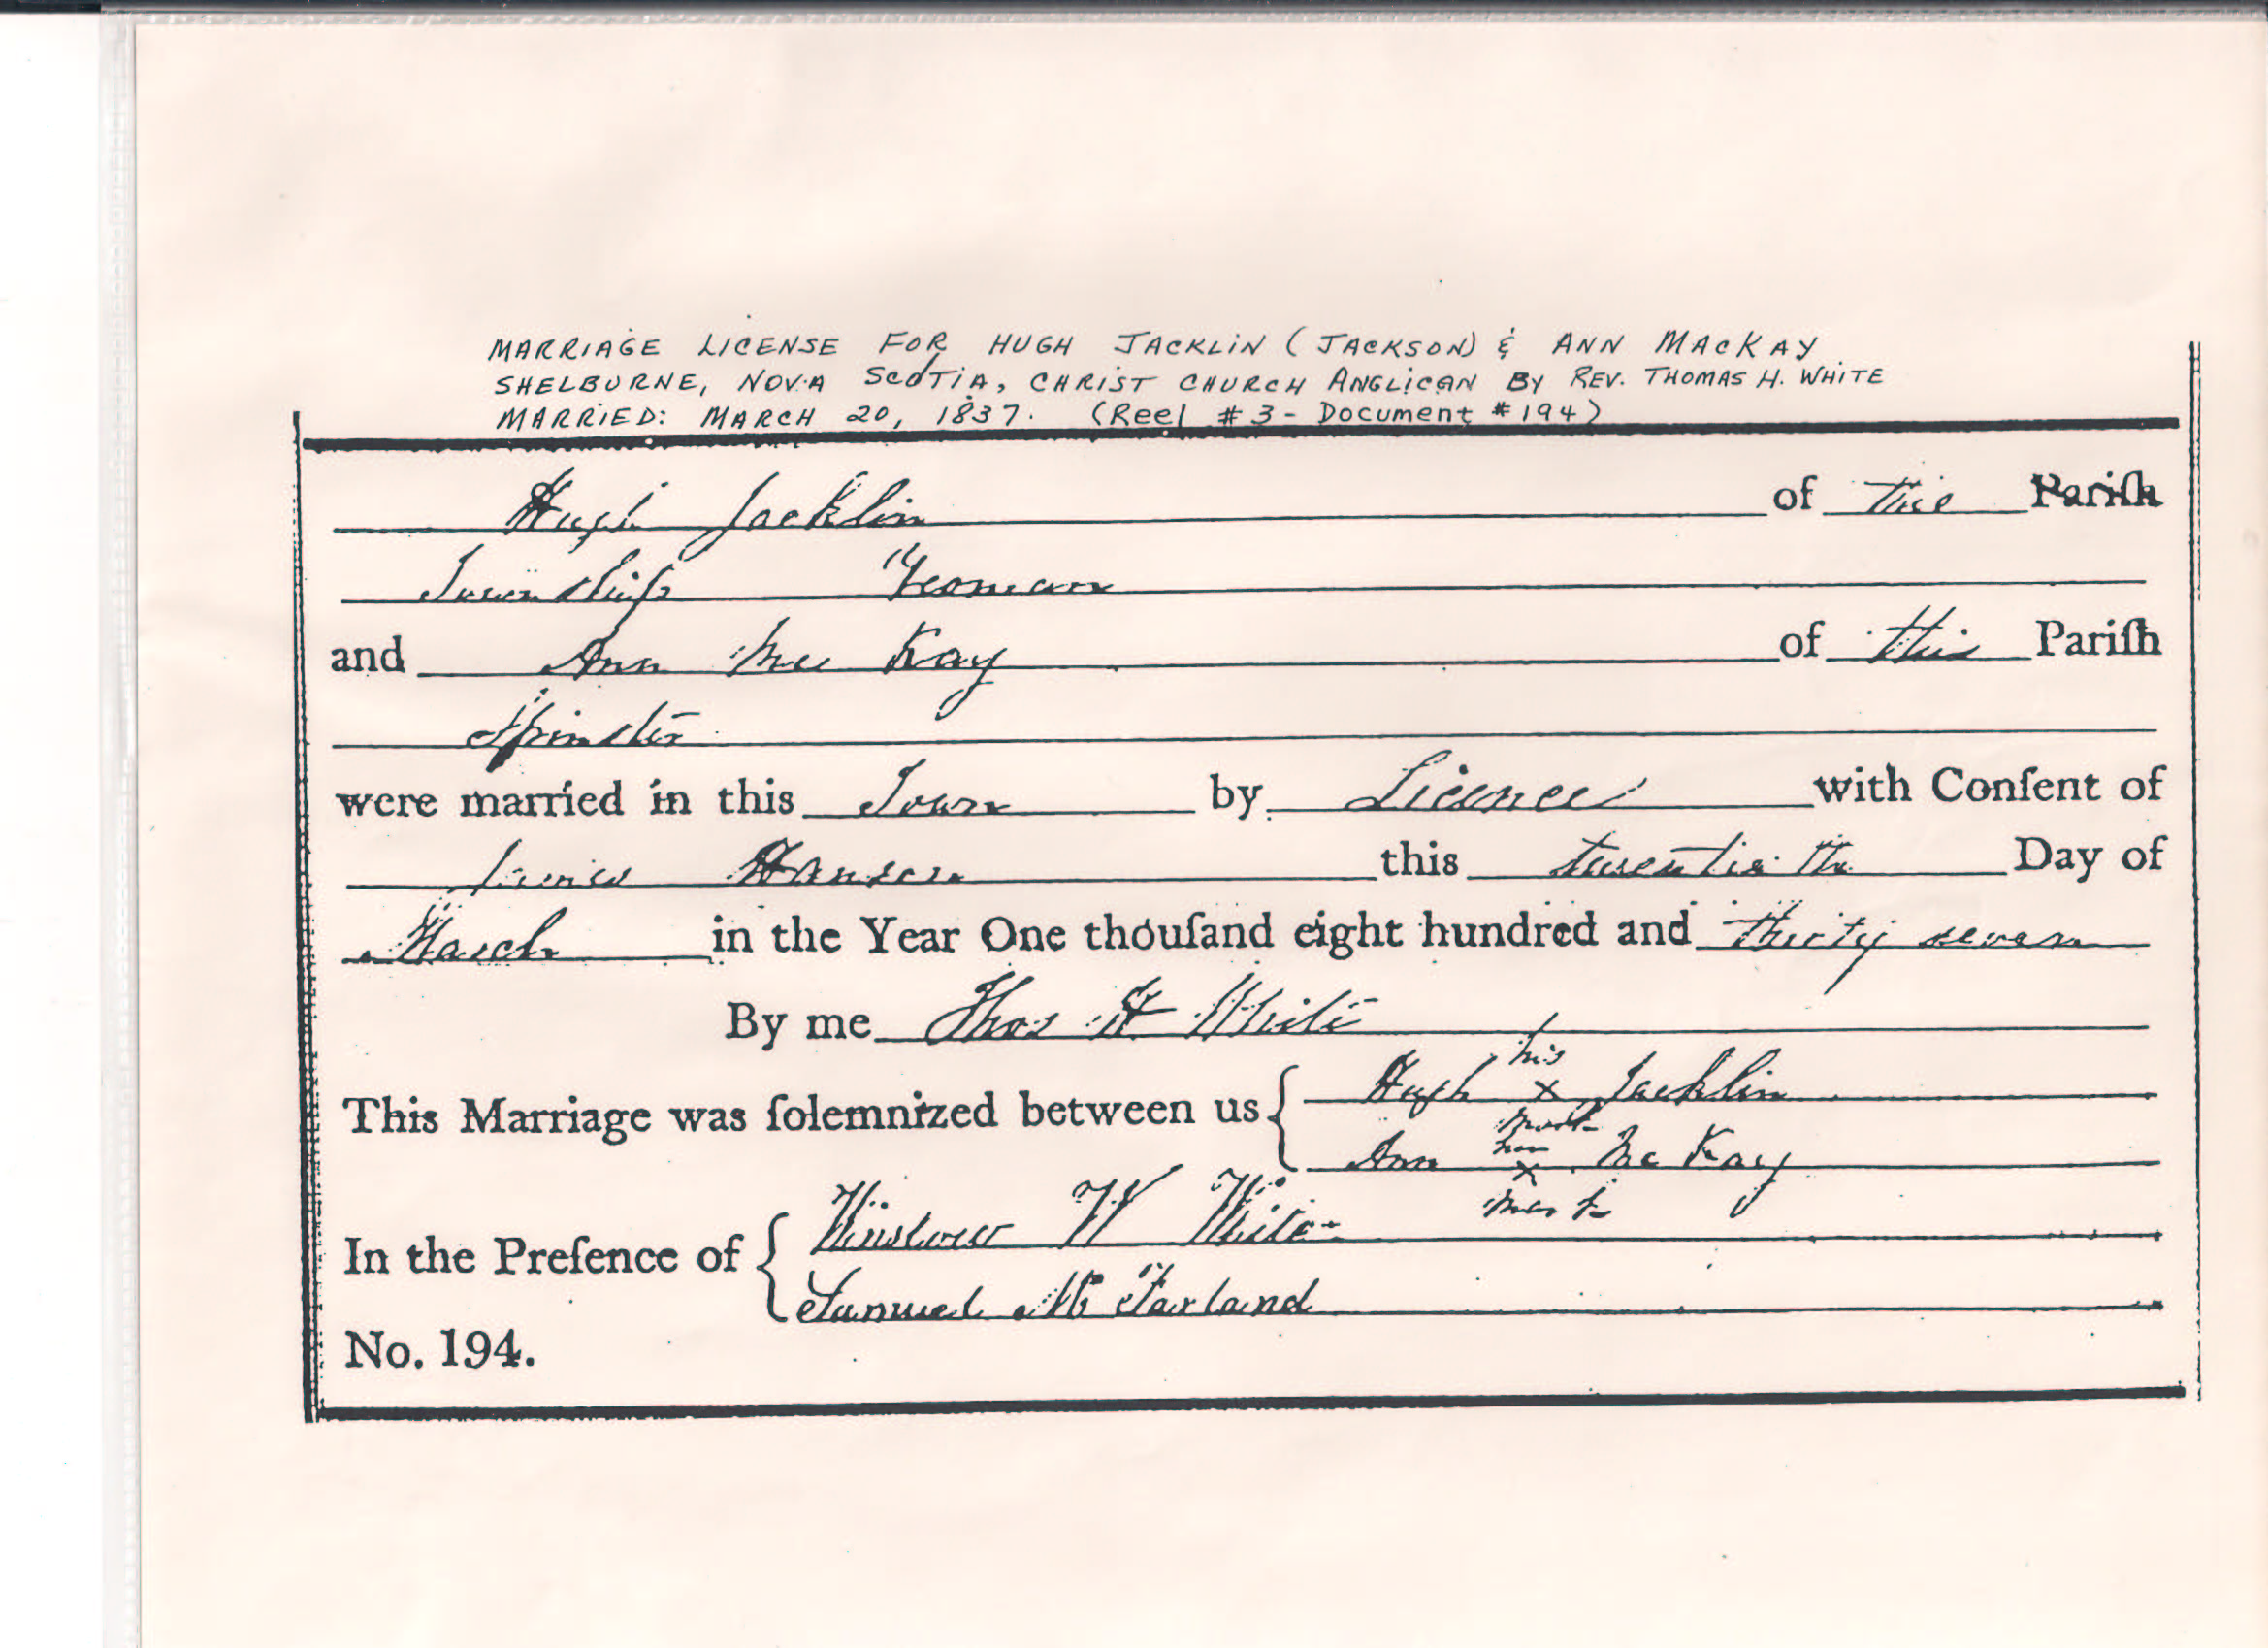 MARRIAGE LICENSE FOR HUGH JACKLIN (JACKSON) & ANN MACKAY
SHELBURNE, NOVA SCOTIA, CHRIST CHURCH ANGLICAN BY REV. THOMAS H. WHITE
MARRIED: MARCH 20, 1837. (Reel #3 - Document #194)
Hugh Jacklin of this Pariſh
Township Yeoman
and Ann Mc Kay of this Pariſh
Spinster
were married in this Town by Licence with Conſent of
this twentieth Day of
March in the Year One thouſand eight hundred and thirty seven
By me Thos H White
his
This Marriage was ſolemnized between us { Hugh x Jacklin
mark
her
Ann x Mc Kay
mark
In the Preſence of { Winslow W White
Samuel Mc Farland
No. 194.